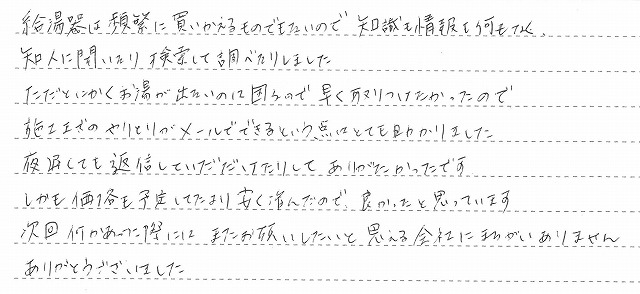 給湯器は頻繁に買いかえるものでもないので 知識も情報も何もなく、
知人に聞いたり 検索して調べたりしました
ただとにかくお湯が出ないのは困るので 早く取りつけたかったので
施工までのやりとりがメールでできるという点はとても助かりました
夜遅くても返信していただけたりして ありがたかったです
しかも価格も予定してたより安く済んだので、良かったと思っています
次回何かあった際には またお願いしたいと思える会社にまちがいありません
ありがとうございました